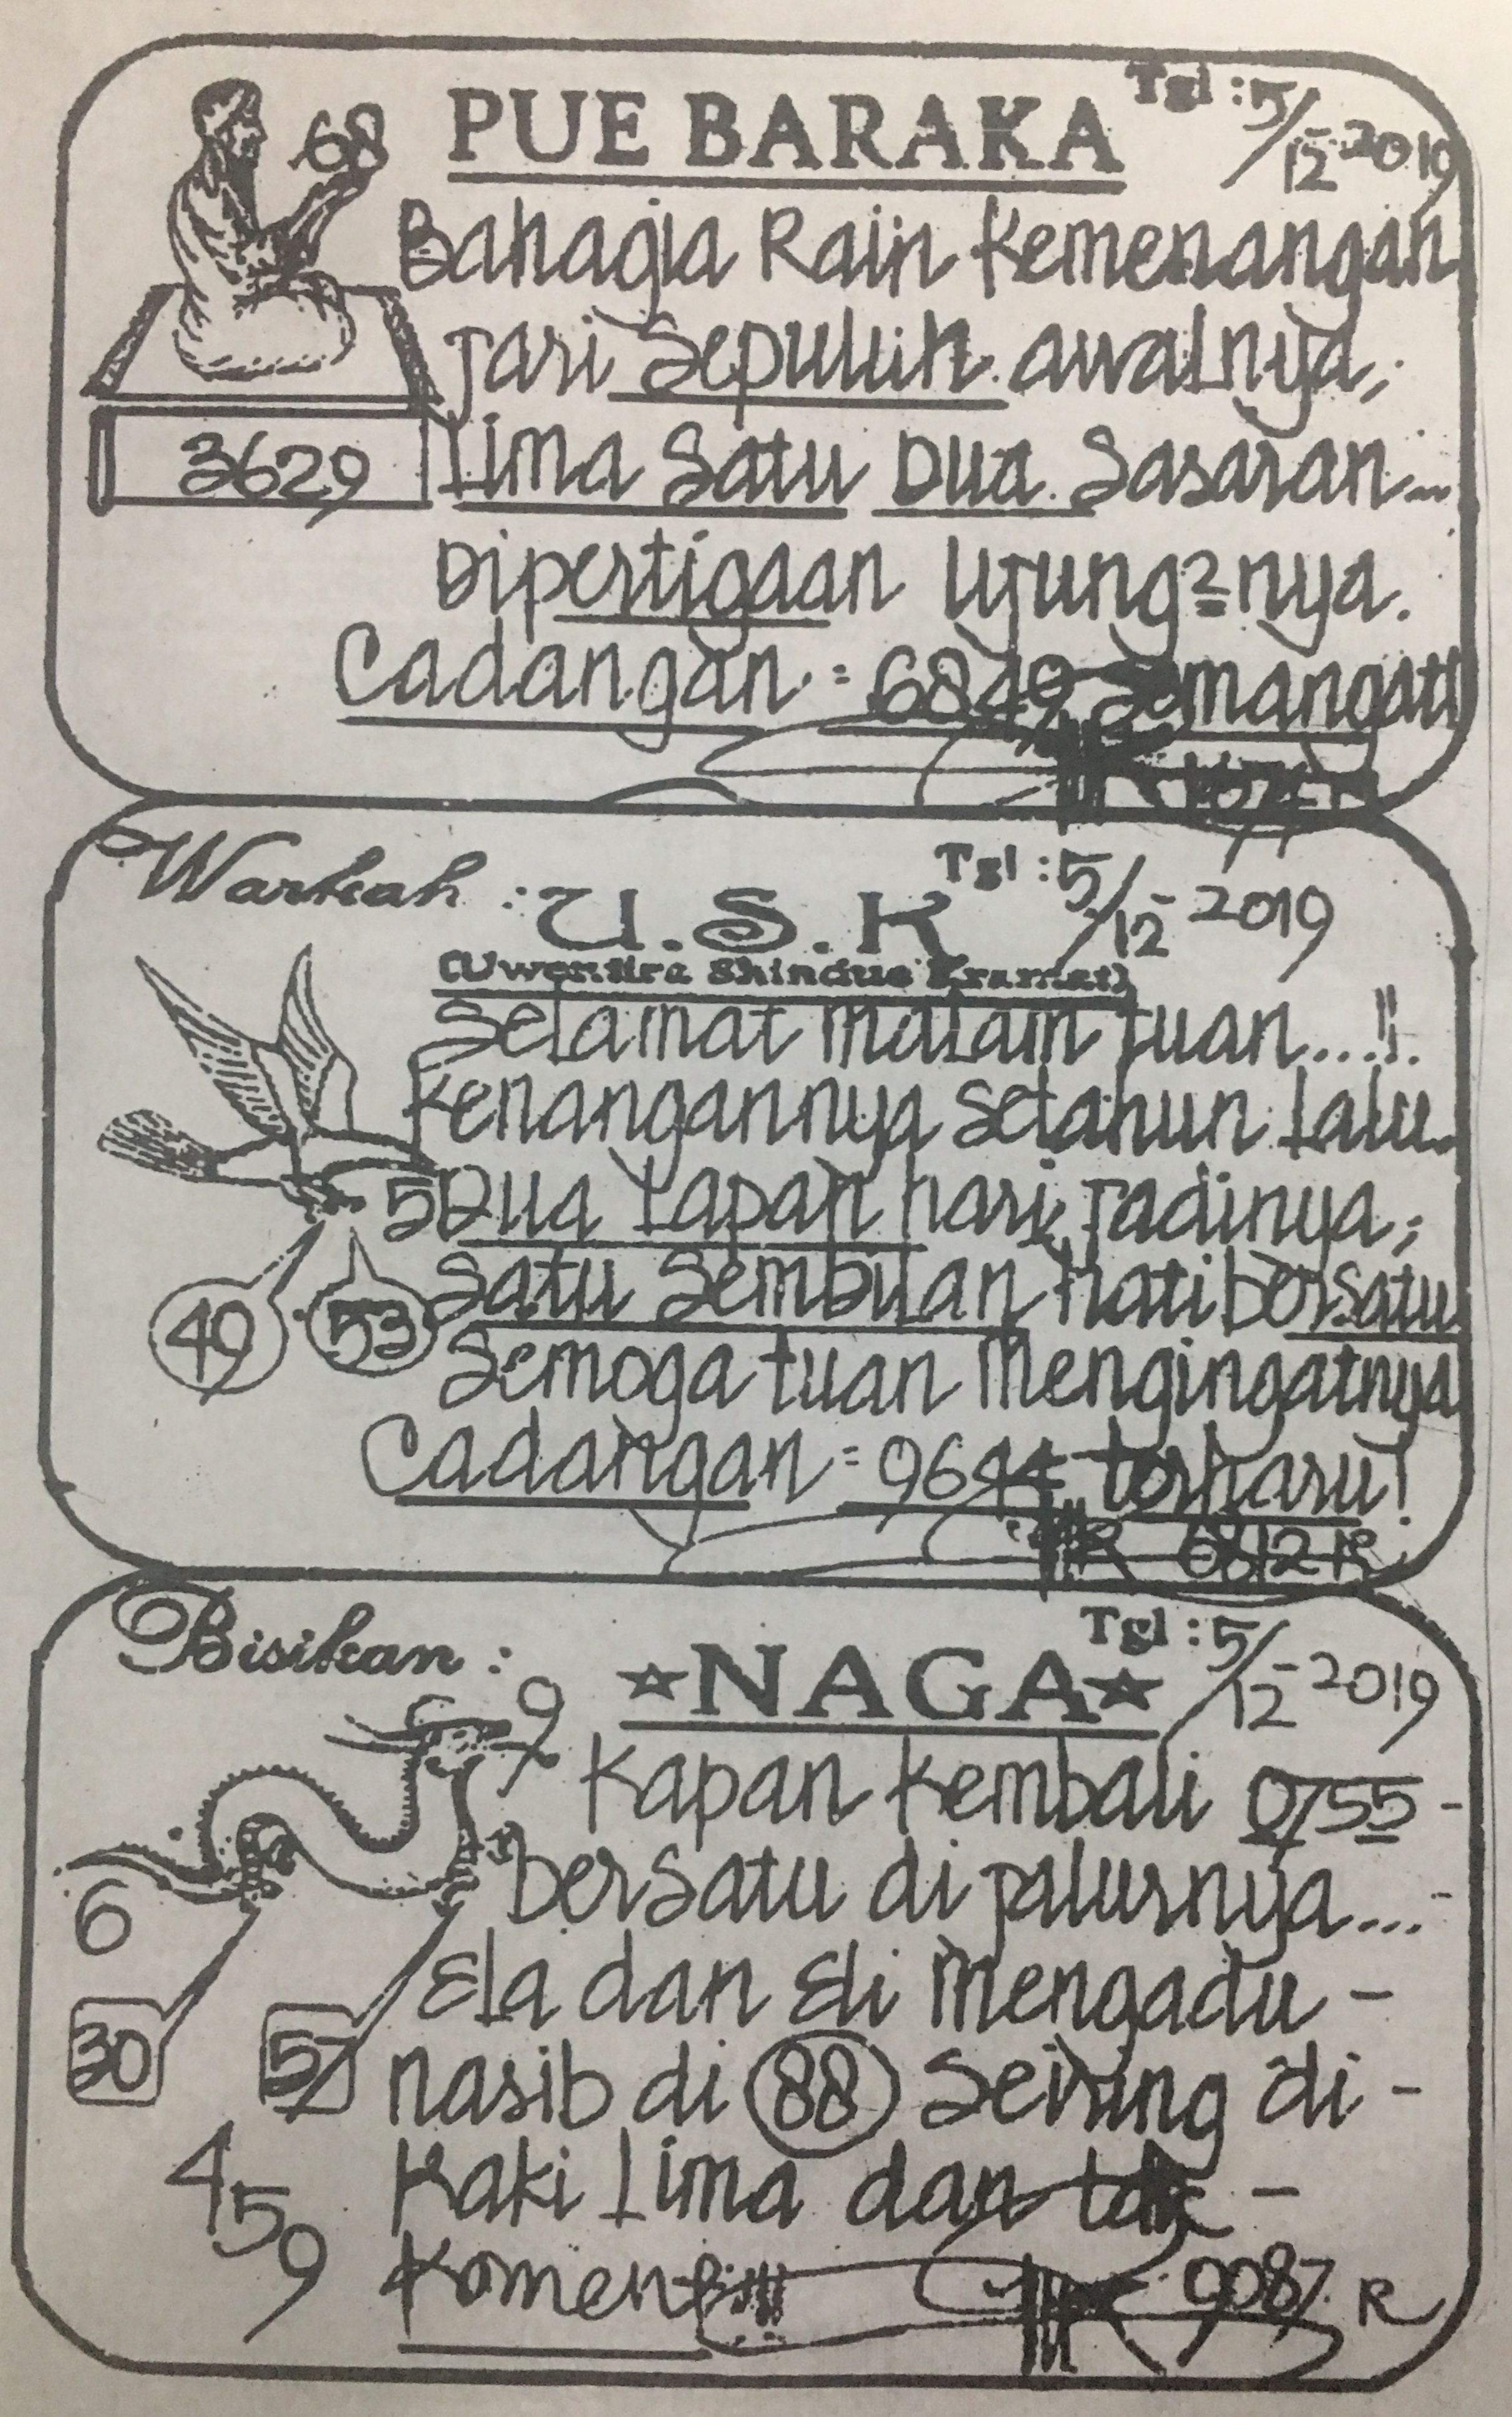 PUE BARAKA
Tgl : 5/12-2019
68
Bahagia Rain Kemenangan
Jari Sepuluh awalnya,
3629
Lima Satu Dua Sasaran...
Dipertigaan Ujung2nya.
Cadangan = 6849 Semangat!
Warkah : U.S.K
Tgl : 5/12-2019
(Uwentira Shindue Kramat)
Selamat malam tuan...!!
Kenangannya setahun lalu.
5 Dua Lapan hari Jadinya,
49 53
Satu Sembilan hati bersatu
Semoga tuan Mengingatnya
Cadangan = 9644 terharu!
R 6812 R
Bisikan : ☆NAGA☆
Tgl : 5/12-2019
9
Kapan Kembali 0755-
bersatu di jalurnya...-
6
Ela dan Eli Mengadu -
30 57
nasib di 88 Seiring di -
Kaki Lima dan tak -
459
Komen
9087 R